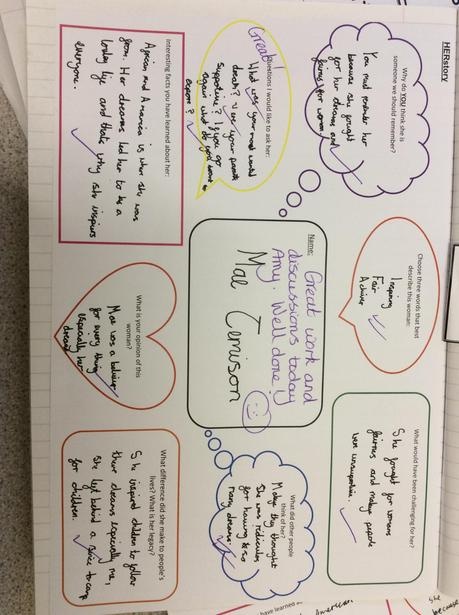 HERstory
Why do YOU think she is
someone we should remember?
You must remember her
because she fought
for her dreams and
fairness for women
Choose three words that best
describe this woman:
Inspiring
Fair
Achiever
What would have been challenging for her?
She fought for womens
fairness and many people
were unsupportive.
Great
Questions I would like to ask her:
What was your most
death? Were your parents
Supportive? If you go
again what do you want to
explore?
Name:
Great work and
discussions today
Amy. Well done!
Mae Jemison
What did other people
think of her?
Maybe they thought
She was ridiculous
for having so
many dreams.
Interesting facts you have learned about her:
African and America is where she was
from. Her dreams led her to be a
today life and that why she inspires
everyone.
What is your opinion of this
woman?
Mae was a believer
for every thing
especially her
dreams
What difference did she make to people's
lives? What is her legacy?
She inspired children to follow
their dreams especially me,
She left behind a space camp
for children.